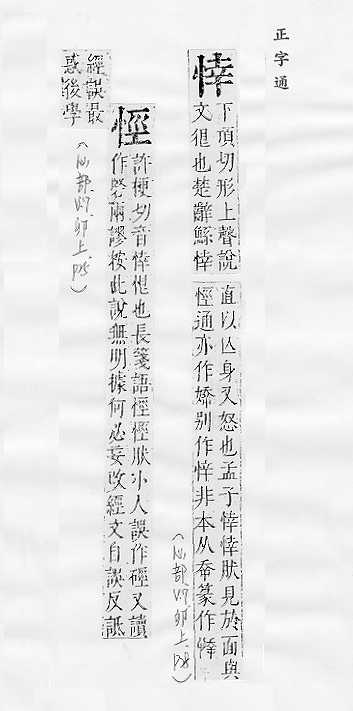 正字通
悻
下頂切形上聲說
文很也楚辭鯀悻
直以亾身又怒也孟子悻悻狀見於面與
悻通亦作婞別作悻非本从㚔篆作
(心部 卯上
悭
許梗切音悻很也長箋語悭悭狀小人誤作硜又讀
作磬兩謬按此說無明據何必妄改經文自誤反詆
經誤最
惑後學
(心部 卯上